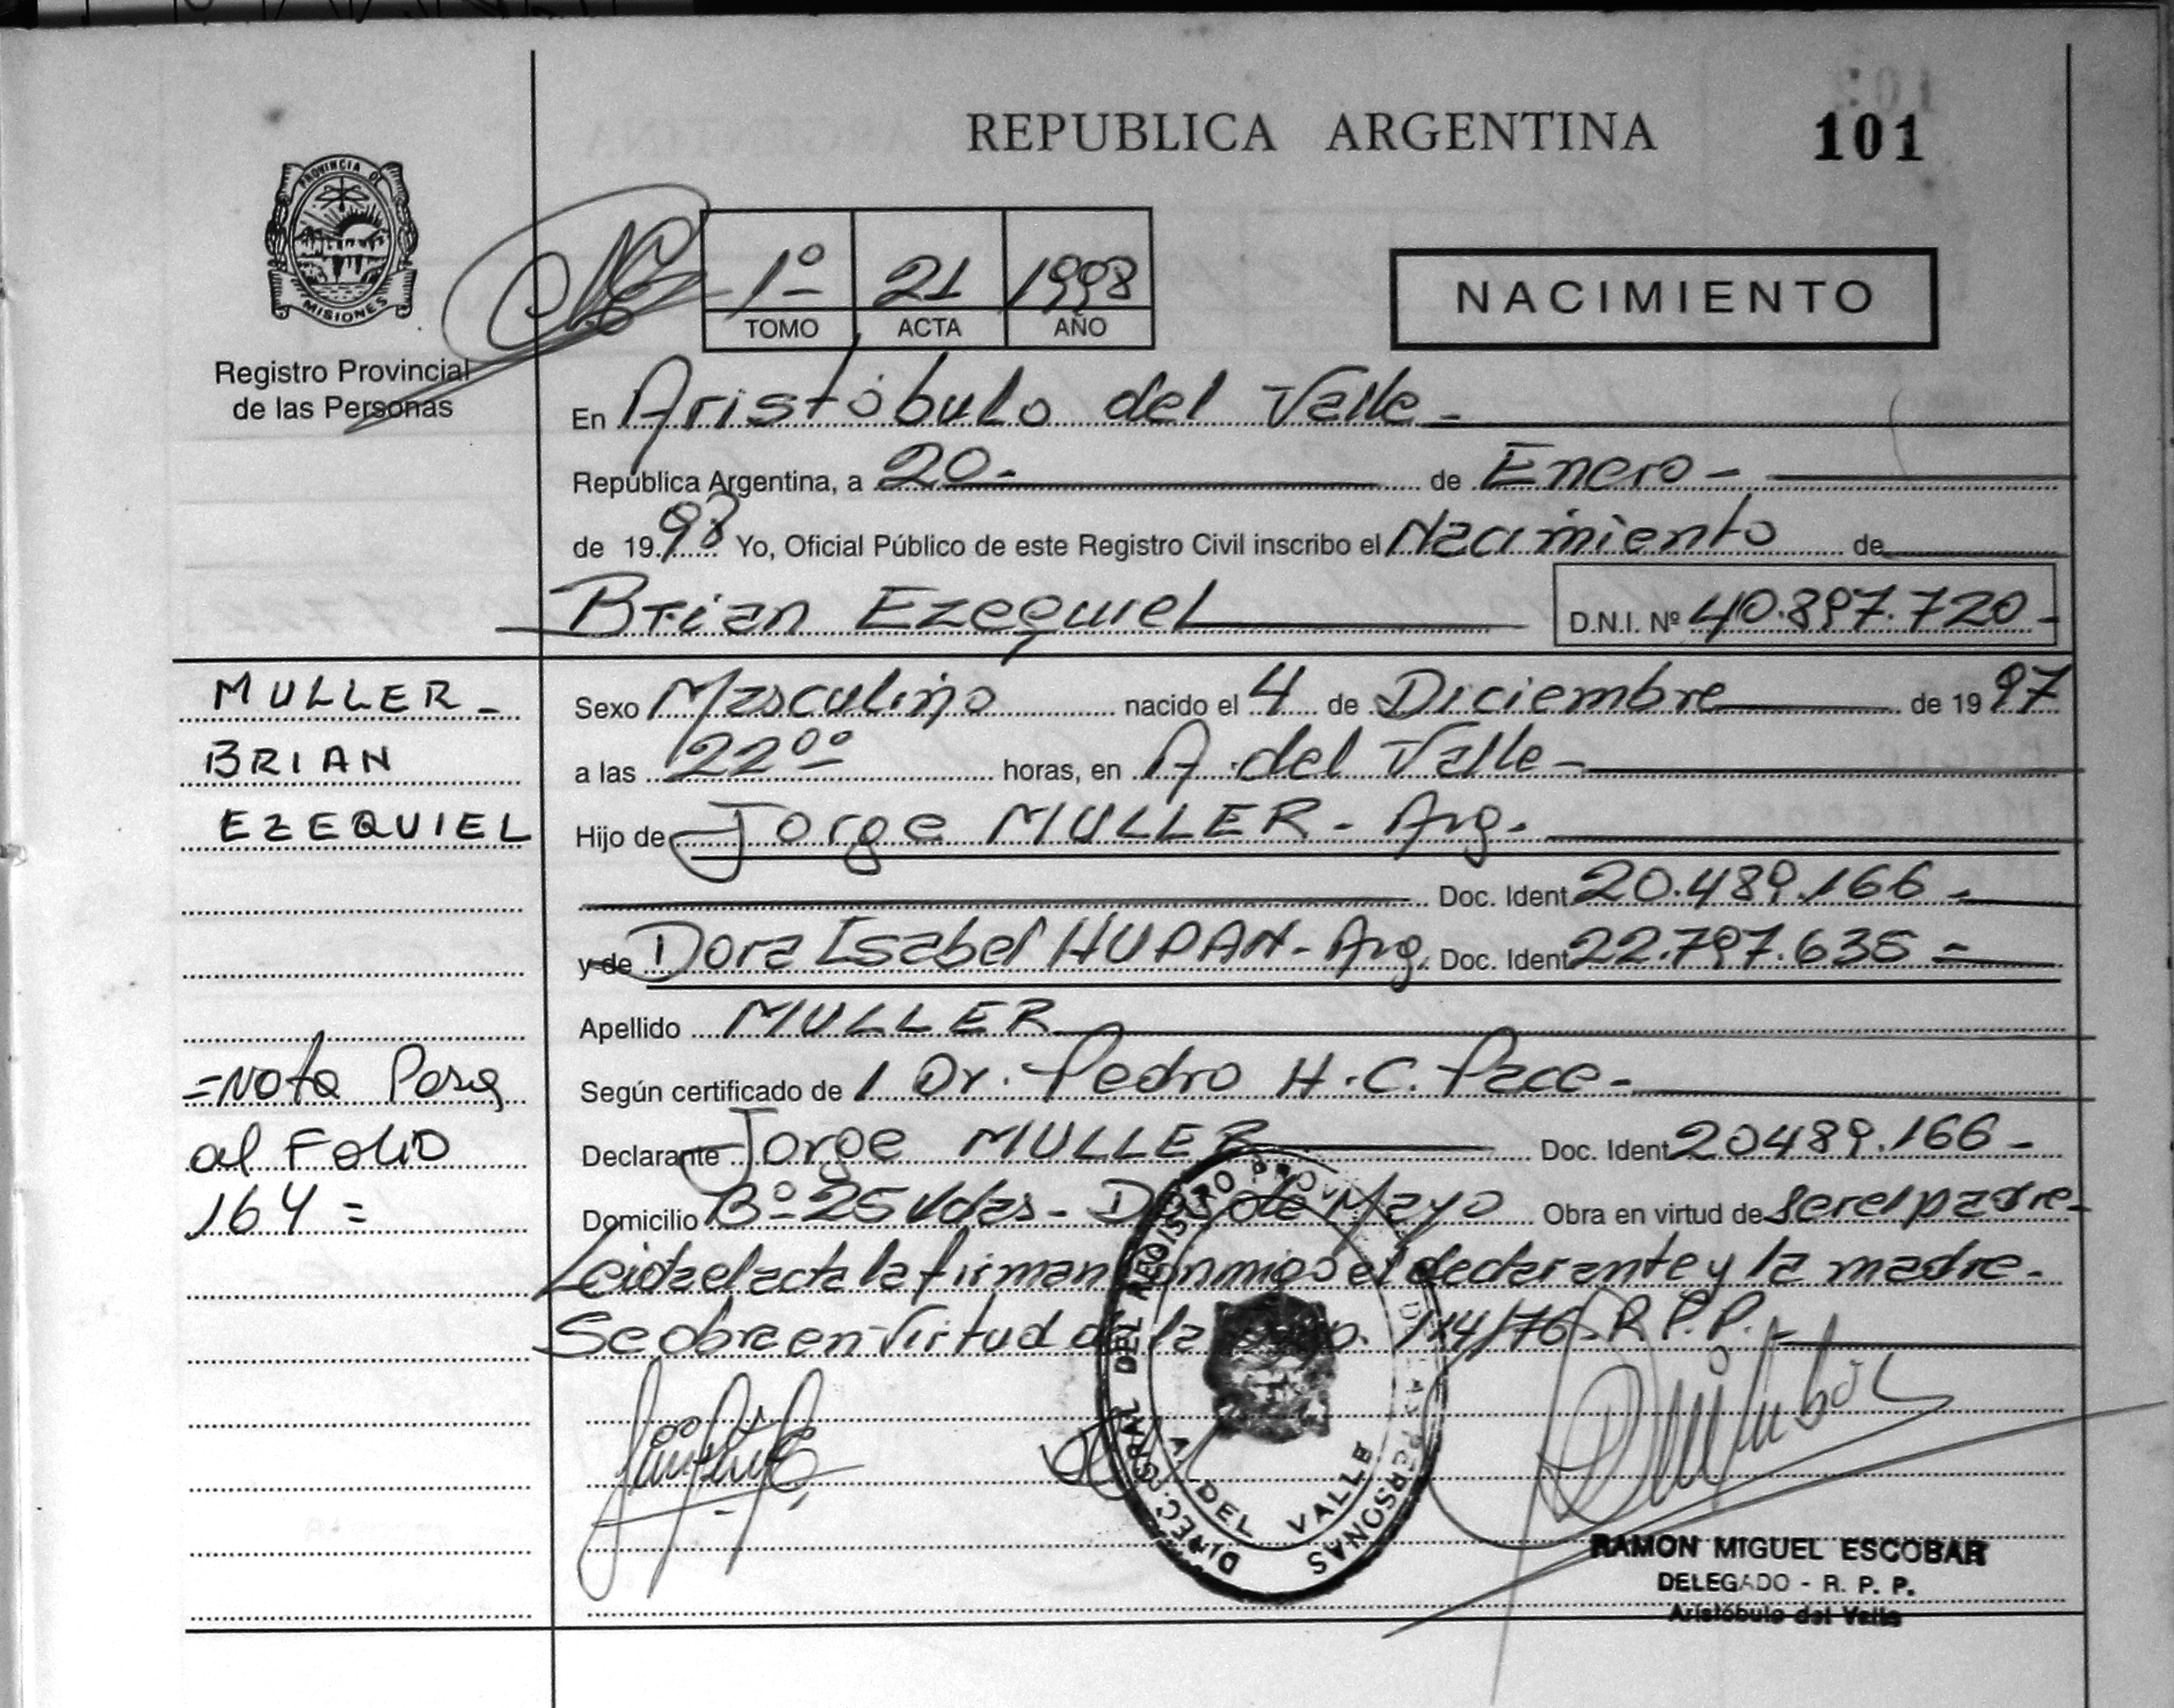 REPUBLICA ARGENTINA 101
PROVINCIA DE
MISIONES
Registro Provincial
de las Personas
1º 21 1998
TOMO ACTA AÑO
NACIMIENTO
En Aristóbulo del Valle -
República Argentina, a 20- de Enero -
de 1998 Yo, Oficial Público de este Registro Civil inscribo el Nacimiento de
Brian Ezequiel D.N.I. Nº 40.897.720-
MULLER -
BRIAN
EZEQUIEL
Sexo Masculino nacido el 4 de Diciembre de 1997
a las 22ºº horas, en A. del Valle -
Hijo de Jorge MULLER - Arg.
Doc. Ident 20.489.166 -
y de Dora Isabel HUPAN - Arg. Doc. Ident 22.797.635 =
Apellido MULLER
Según certificado de / Dr. Pedro H. C. Pace -
Declarante Jorge MULLER Doc. Ident 20489.166 -
Domicilio Bº 25 Vdas - Dos de Mayo Obra en virtud de ser el padre -
Leida el acta la firman conmigo el declarante y la madre -
Se obra en Virtud de la 114/76 - R.P.P. -
=Nota Pasa
al Folio
164 =
DIREC. GRAL DEL REGISTRO PROV. DE LAS PERSONAS
A. DEL VALLE
RAMON MIGUEL ESCOBAR
DELEGADO - R. P. P.
Aristóbulo del Valle